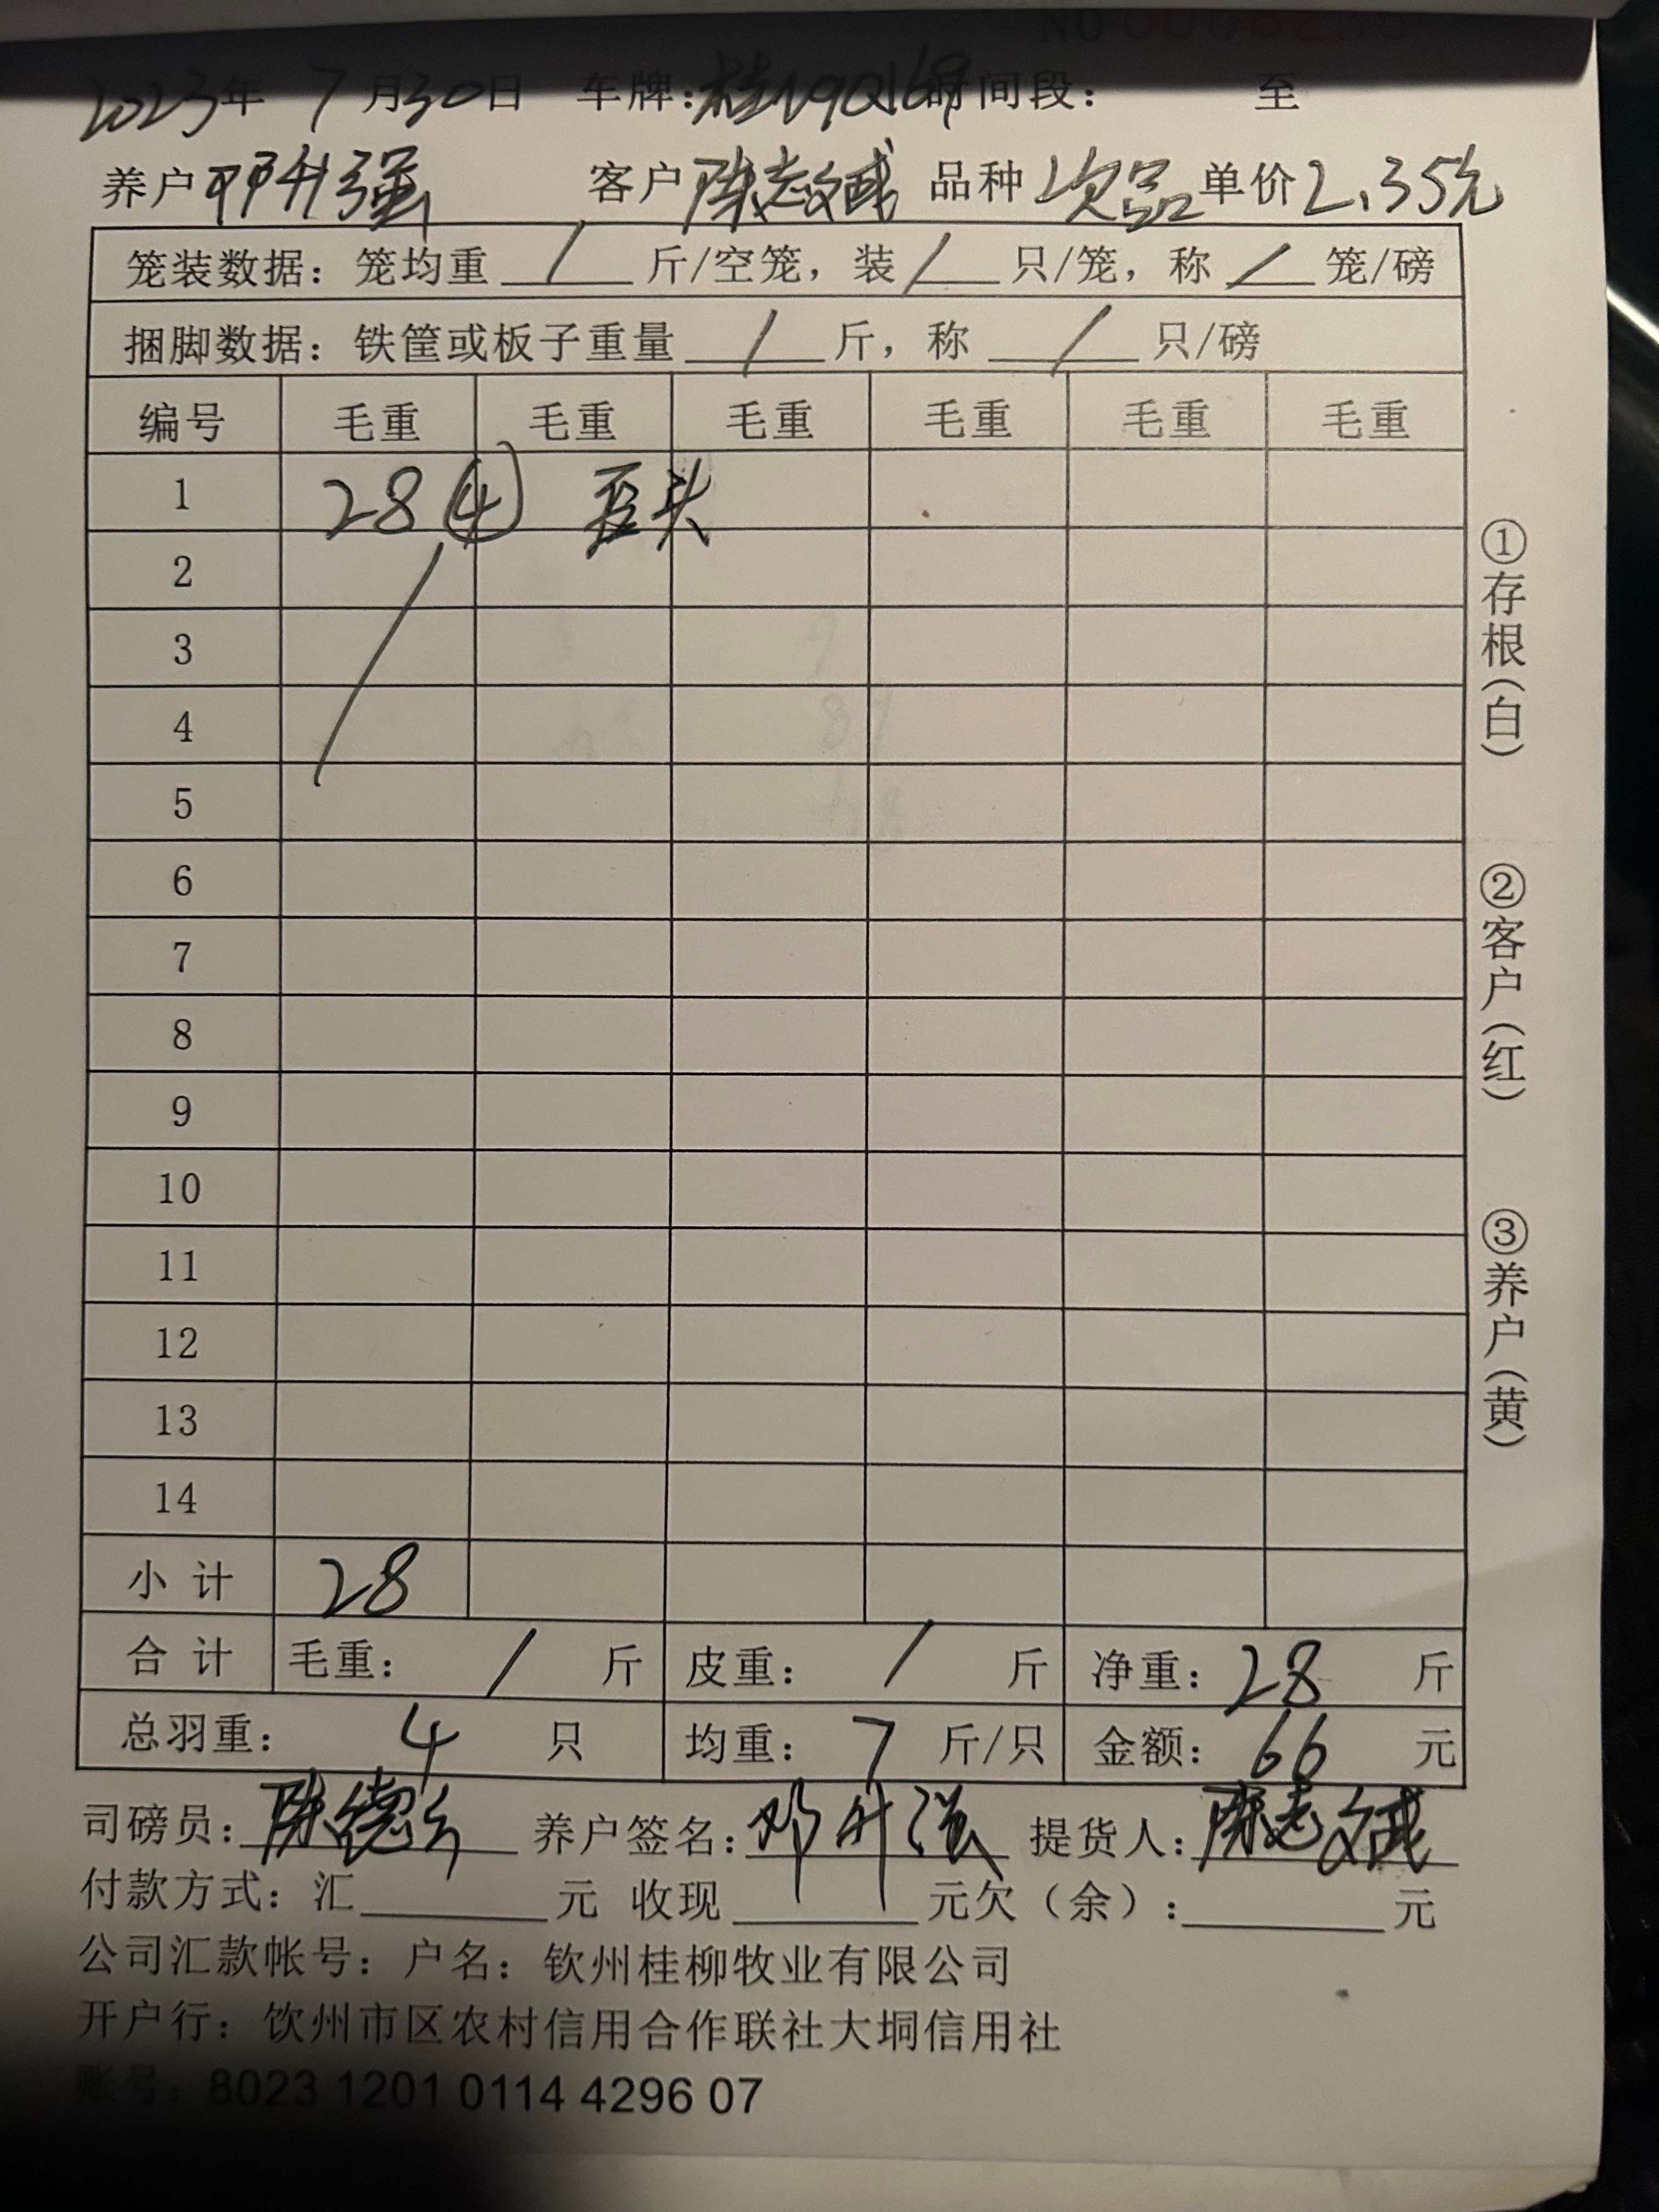 NO
2023年 7月30日 车牌: 时间段: 至
养户 邓升强 客户 陈志斌 品种 次品 单价 2.35元
笼装数据: 笼均重 / 斤/空笼, 装 / 只/笼, 称 / 笼/磅
捆脚数据: 铁筐或板子重量 / 斤, 称 / 只/磅
编号 毛重 毛重 毛重 毛重 毛重 毛重
1 28 ④ 歪头
2
3
4
5
6
7
8
9
10
11
12
13
14
小 计 28
合 计 毛重: / 斤 皮重: / 斤 净重: 28 斤
总羽重: 4 只 均重: 7 斤/只 金额: 66 元
司磅员: 养户签名: 邓升强 提货人: 陈志斌
付款方式: 汇 元 收现 元欠(余): 元
公司汇款帐号: 户名: 钦州桂柳牧业有限公司
开户行: 饮州市区农村信用合作联社大垌信用社
账号: 8023 1201 0114 4296 07
①存根(白)
②客户(红)
③养户(黄)